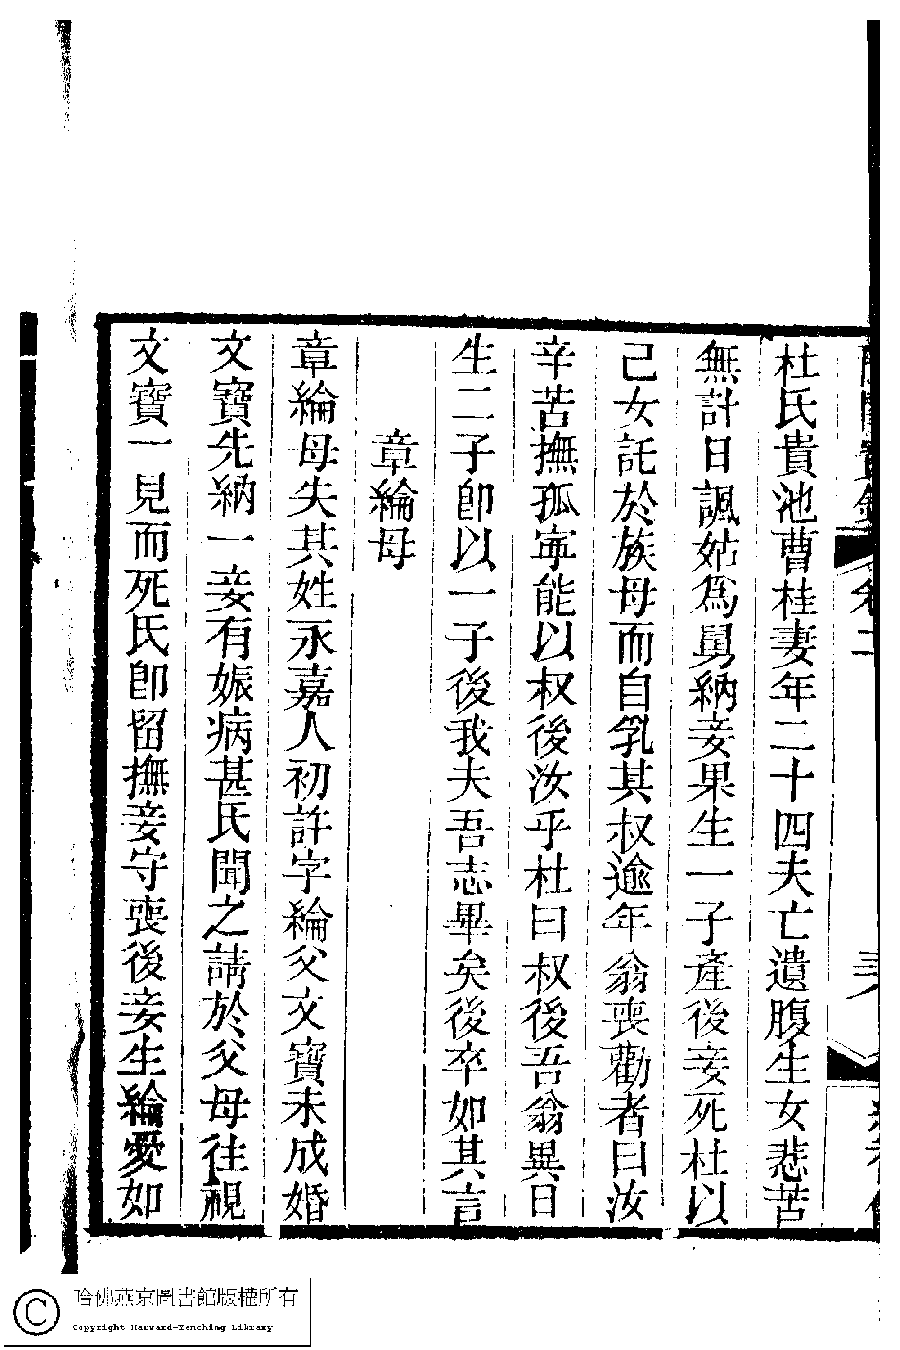 杜氏貴池曹桂妻年二十四夫亡遺腹生女悲苦
無計日諷姑爲舅納妾果生一子產後妾死杜以
己女託於族母而自乳其叔逾年翁喪勸者曰汝
辛苦撫孤寧能以叔後汝乎杜曰叔後吾翁異日
生二子卽以一子後我夫吾志畢矣後卒如其言
章綸母
章綸母失其姓永嘉人初許字綸父文寶未成婚
文寶先納一妾有娠病甚氏聞之請於父母往視
文寶一見而死氏卽留撫妾守喪後妾生綸愛如
哈佛燕京圖書館版權所有
Copyright Harvard-Yenching Library